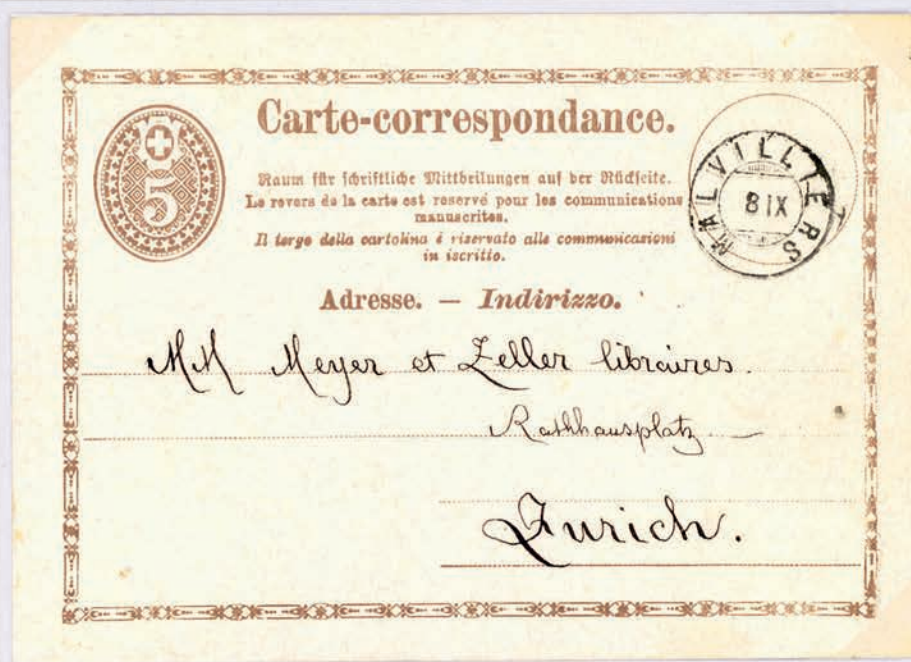 Carte-correspondance.
5
Raum für schriftliche Mittheilungen auf der Rückseite.
Le revers de la carte est reservé pour les communications
manuscrites.
Il tergo della cartolina è riservato alle communicazioni
in iscritto.
MALVILLIERS
8 IX
Adresse. — Indirizzo.
MM Meyer et Zeller libraires.
Rathhausplatz —
Zurich.